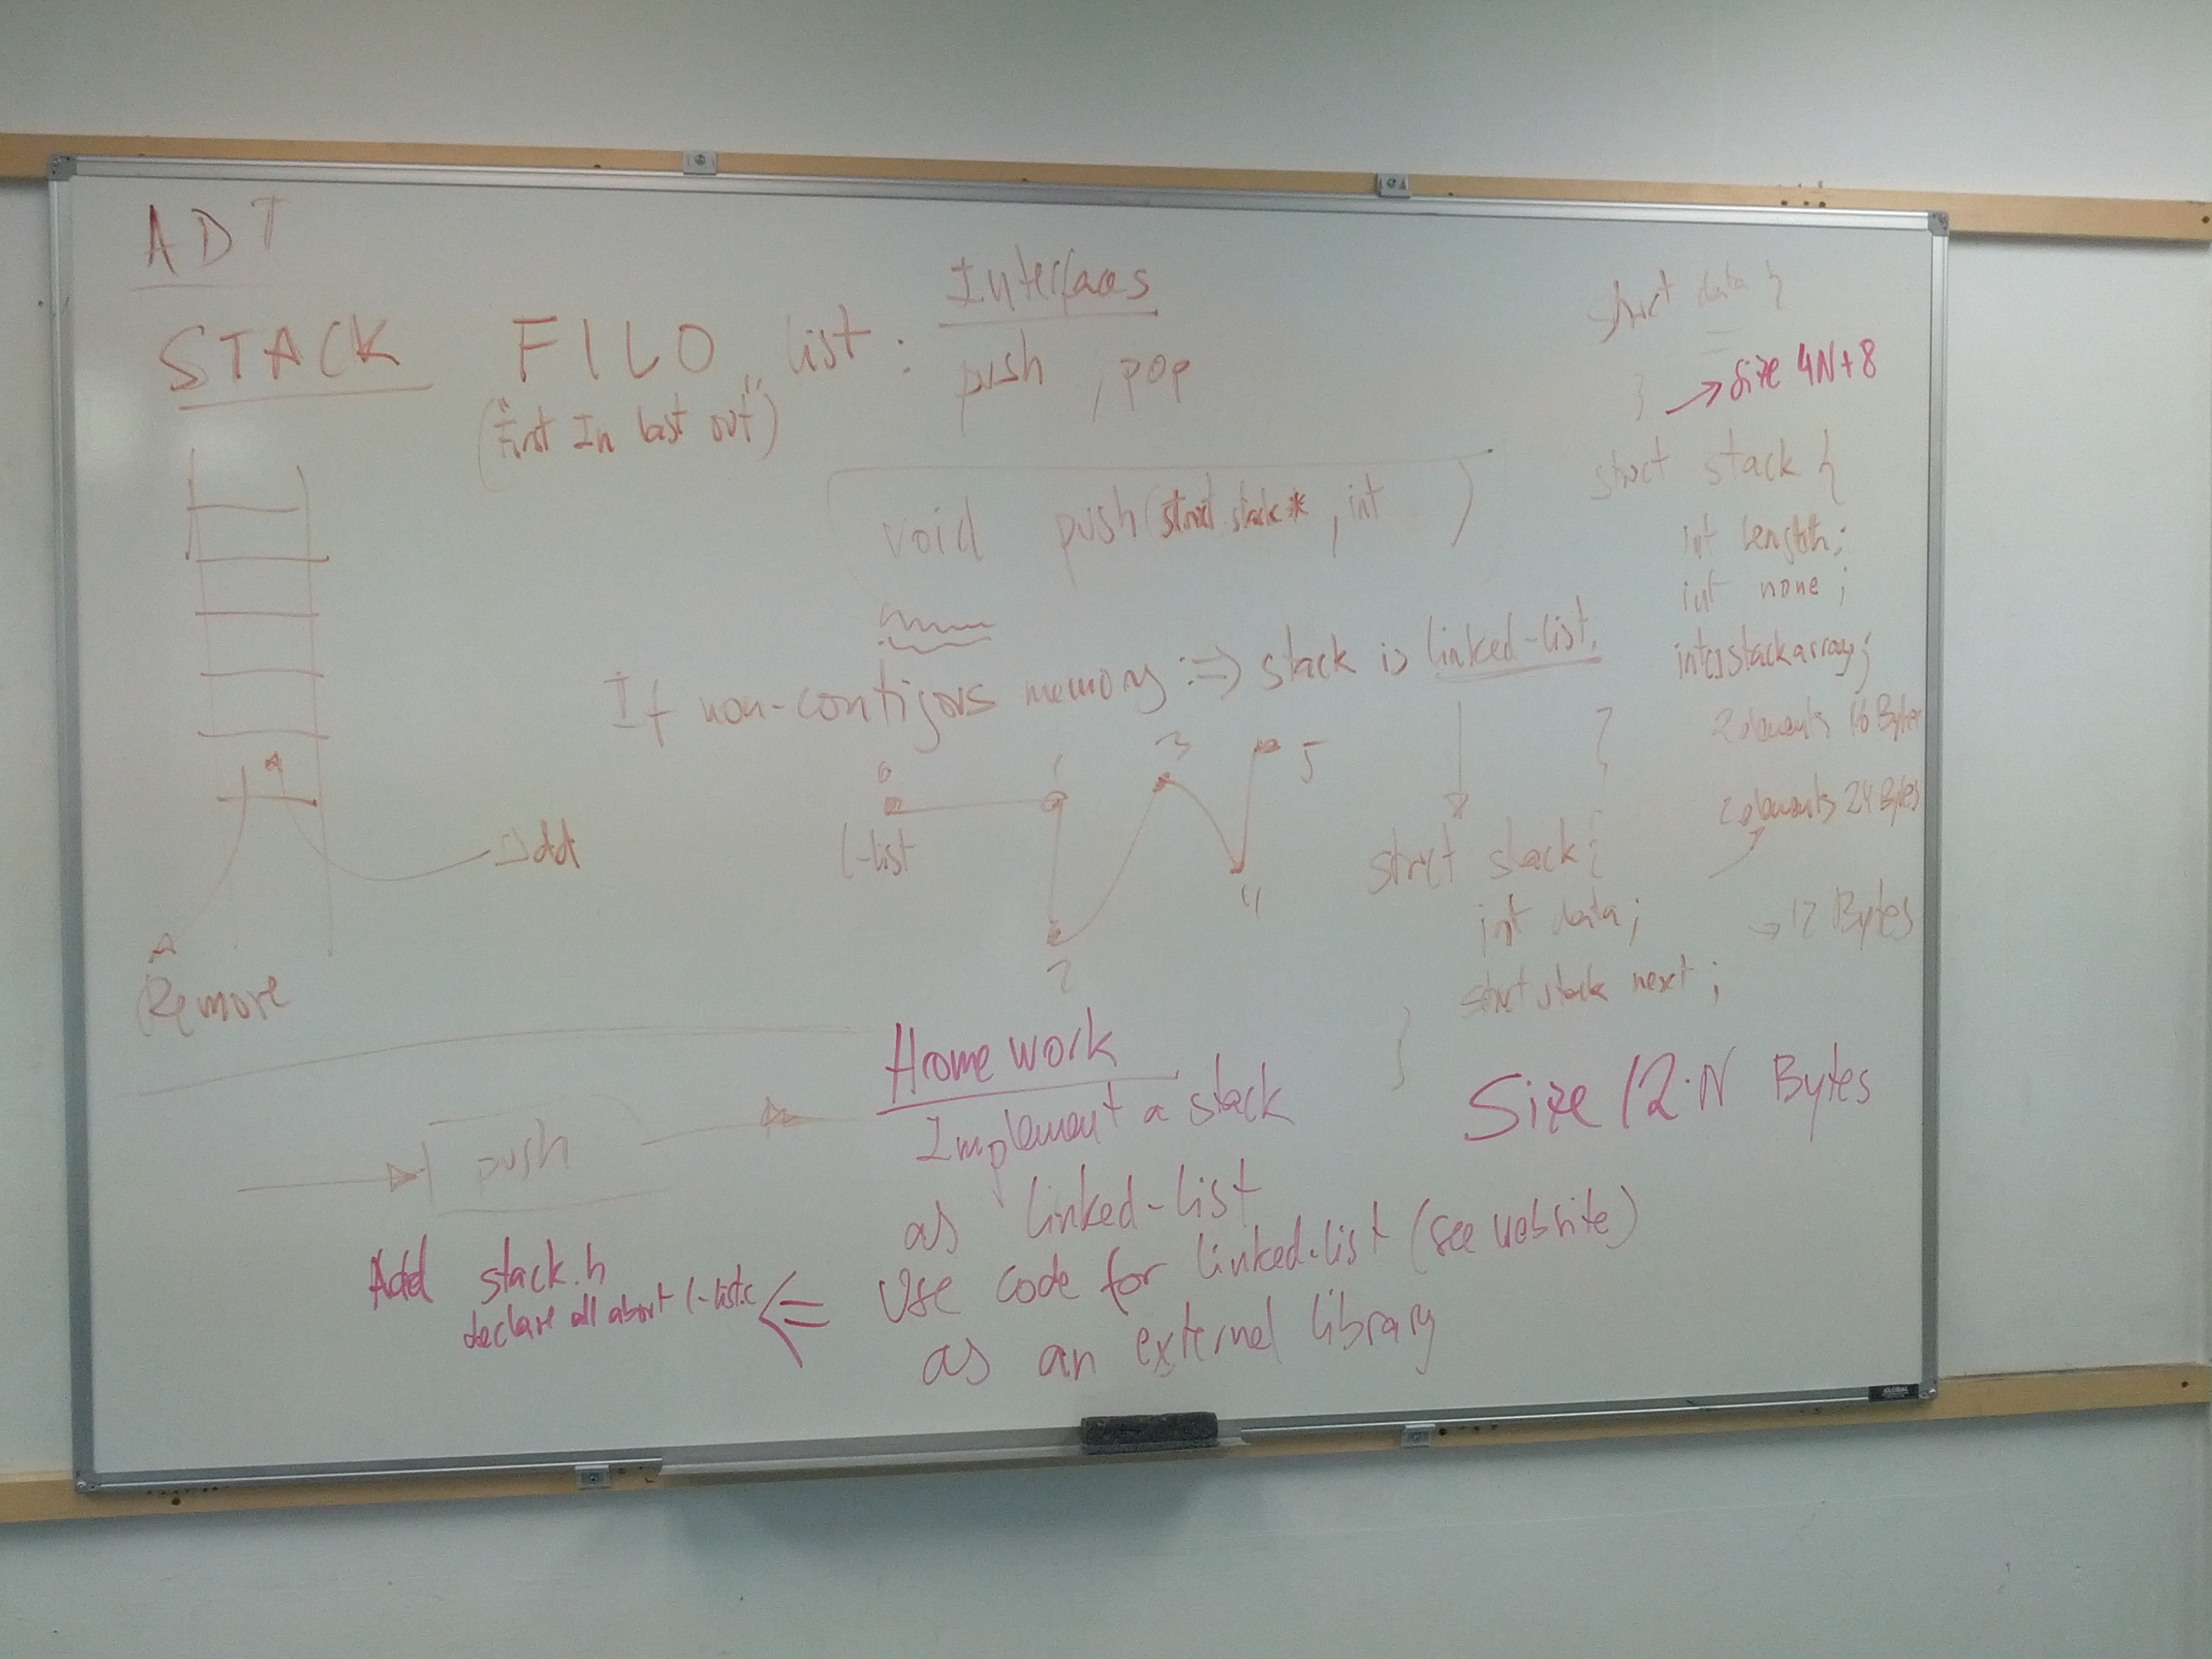 ADT
STACK FILO list: Interfaces
("First In last out") push, pop
void push(struct stack*, int )
If non-contigors memory :=> stack is linked-list.
0 1 2 3 4 5
l-list
Add
Remove
struct data {
}
→ Size 4N+8
struct stack {
int length;
int none;
int[] stackarray;
}
2 elements 16 Bytes
2 elements 24 Bytes
struct stack {
int data;
→ 12 Bytes
struct stack next;
}
Size 12·N Bytes
push
Home work
Implement a stack
as linked-list
Use code for linked-list (see website)
as an external library
Add stack.h
declare all about l-list.c
GLOBAL